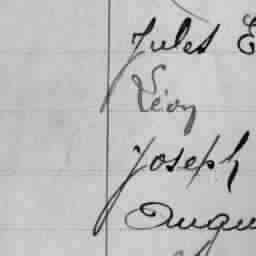 Jules E
Léon
Joseph
Augu